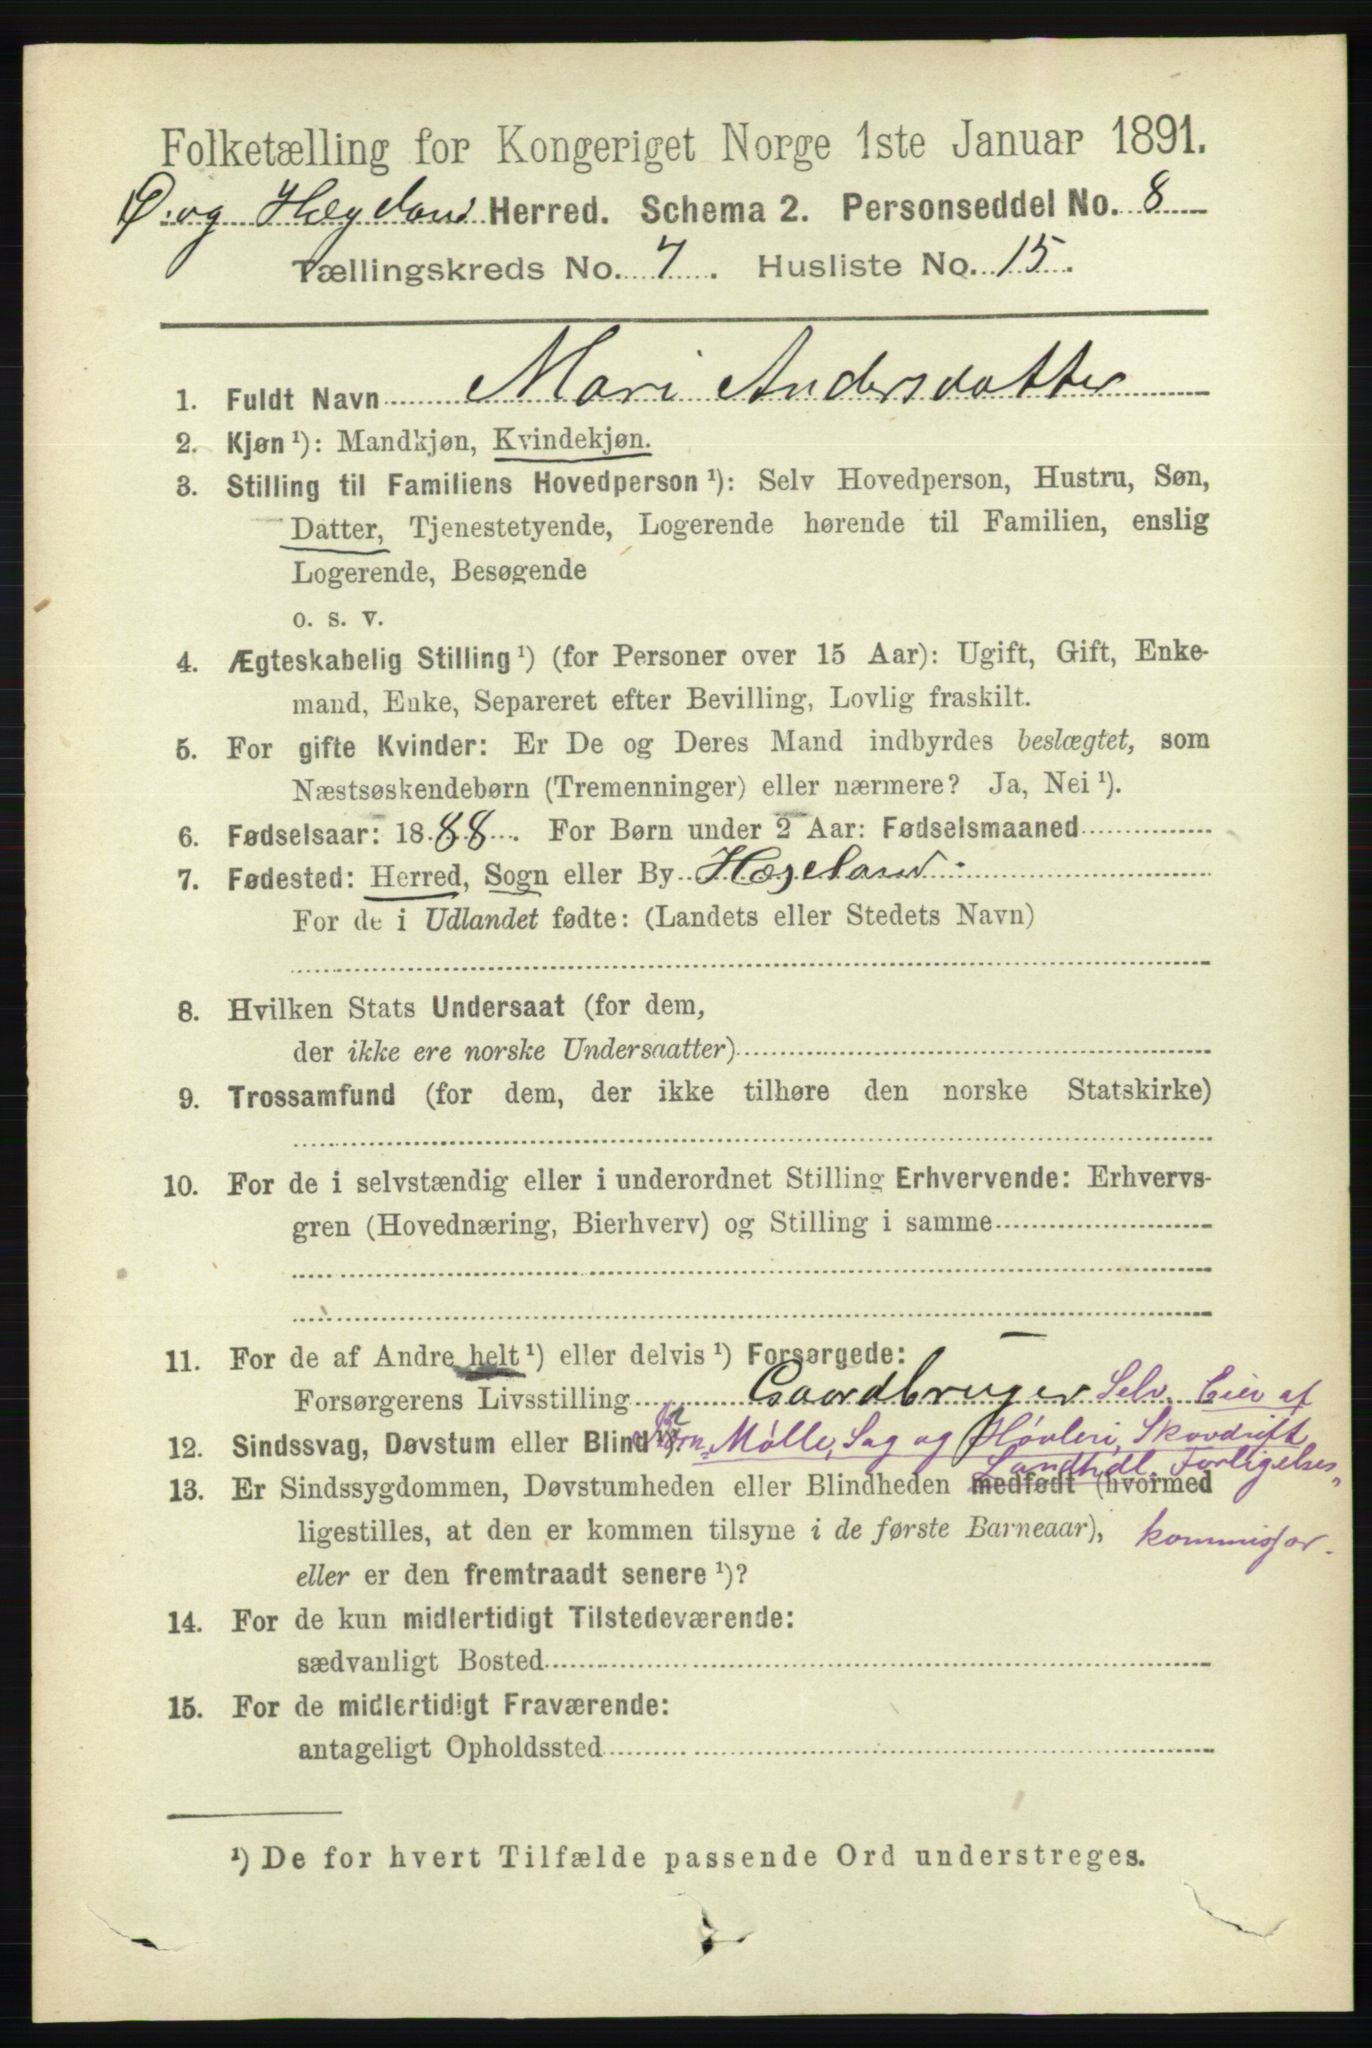 Folketælling for Kongeriget Norge 1ste Januar 1891.
Ø. og Hægeland Herred. Schema 2. Personseddel No. 8
Tællingskreds No. 7. Husliste No. 15.
1. Fuldt Navn Mari Andersdatter
2. Kjøn ¹): Mandkjøn, Kvindekjøn.
3. Stilling til Familiens Hovedperson ¹): Selv Hovedperson, Hustru, Søn,
Datter, Tjenestetyende, Logerende hørende til Familien, enslig
Logerende, Besøgende
o. s. v.
4. Ægteskabelig Stilling ¹) (for Personer over 15 Aar): Ugift, Gift, Enke-
mand, Enke, Separeret efter Bevilling, Lovlig fraskilt.
5. For gifte Kvinder: Er De og Deres Mand indbyrdes beslægtet, som
Næstsøskendebørn (Tremenninger) eller nærmere? Ja, Nei ¹).
6. Fødselsaar: 1888. For Børn under 2 Aar: Fødselsmaaned
7. Fødested: Herred, Sogn eller By Hægeland
For de i Udlandet fødte: (Landets eller Stedets Navn)
8. Hvilken Stats Undersaat (for dem,
der ikke ere norske Undersaatter)
9. Trossamfund (for dem, der ikke tilhøre den norske Statskirke)
10. For de i selvstændig eller i underordnet Stilling Erhvervende: Erhvervs-
gren (Hovednæring, Bierhverv) og Stilling i samme
11. For de af Andre helt ¹) eller delvis ¹) Forsørgede:
Forsørgerens Livsstilling Gaardbruger Selv. Eier af
12. Sindssvag, Døvstum eller Blind Mølle, Sag og Høvleri, Skovdrift
Landhdl. Forligelses-
13. Er Sindssygdommen, Døvstumheden eller Blindheden medfødt (hvormed
ligestilles, at den er kommen tilsyne i de første Barneaar), kommissær.
eller er den fremtraadt senere ¹)?
14. For de kun midlertidigt Tilstedeværende:
sædvanligt Bosted
15. For de midlertidigt Fraværende:
antageligt Opholdssted
¹) De for hvert Tilfælde passende Ord understreges.